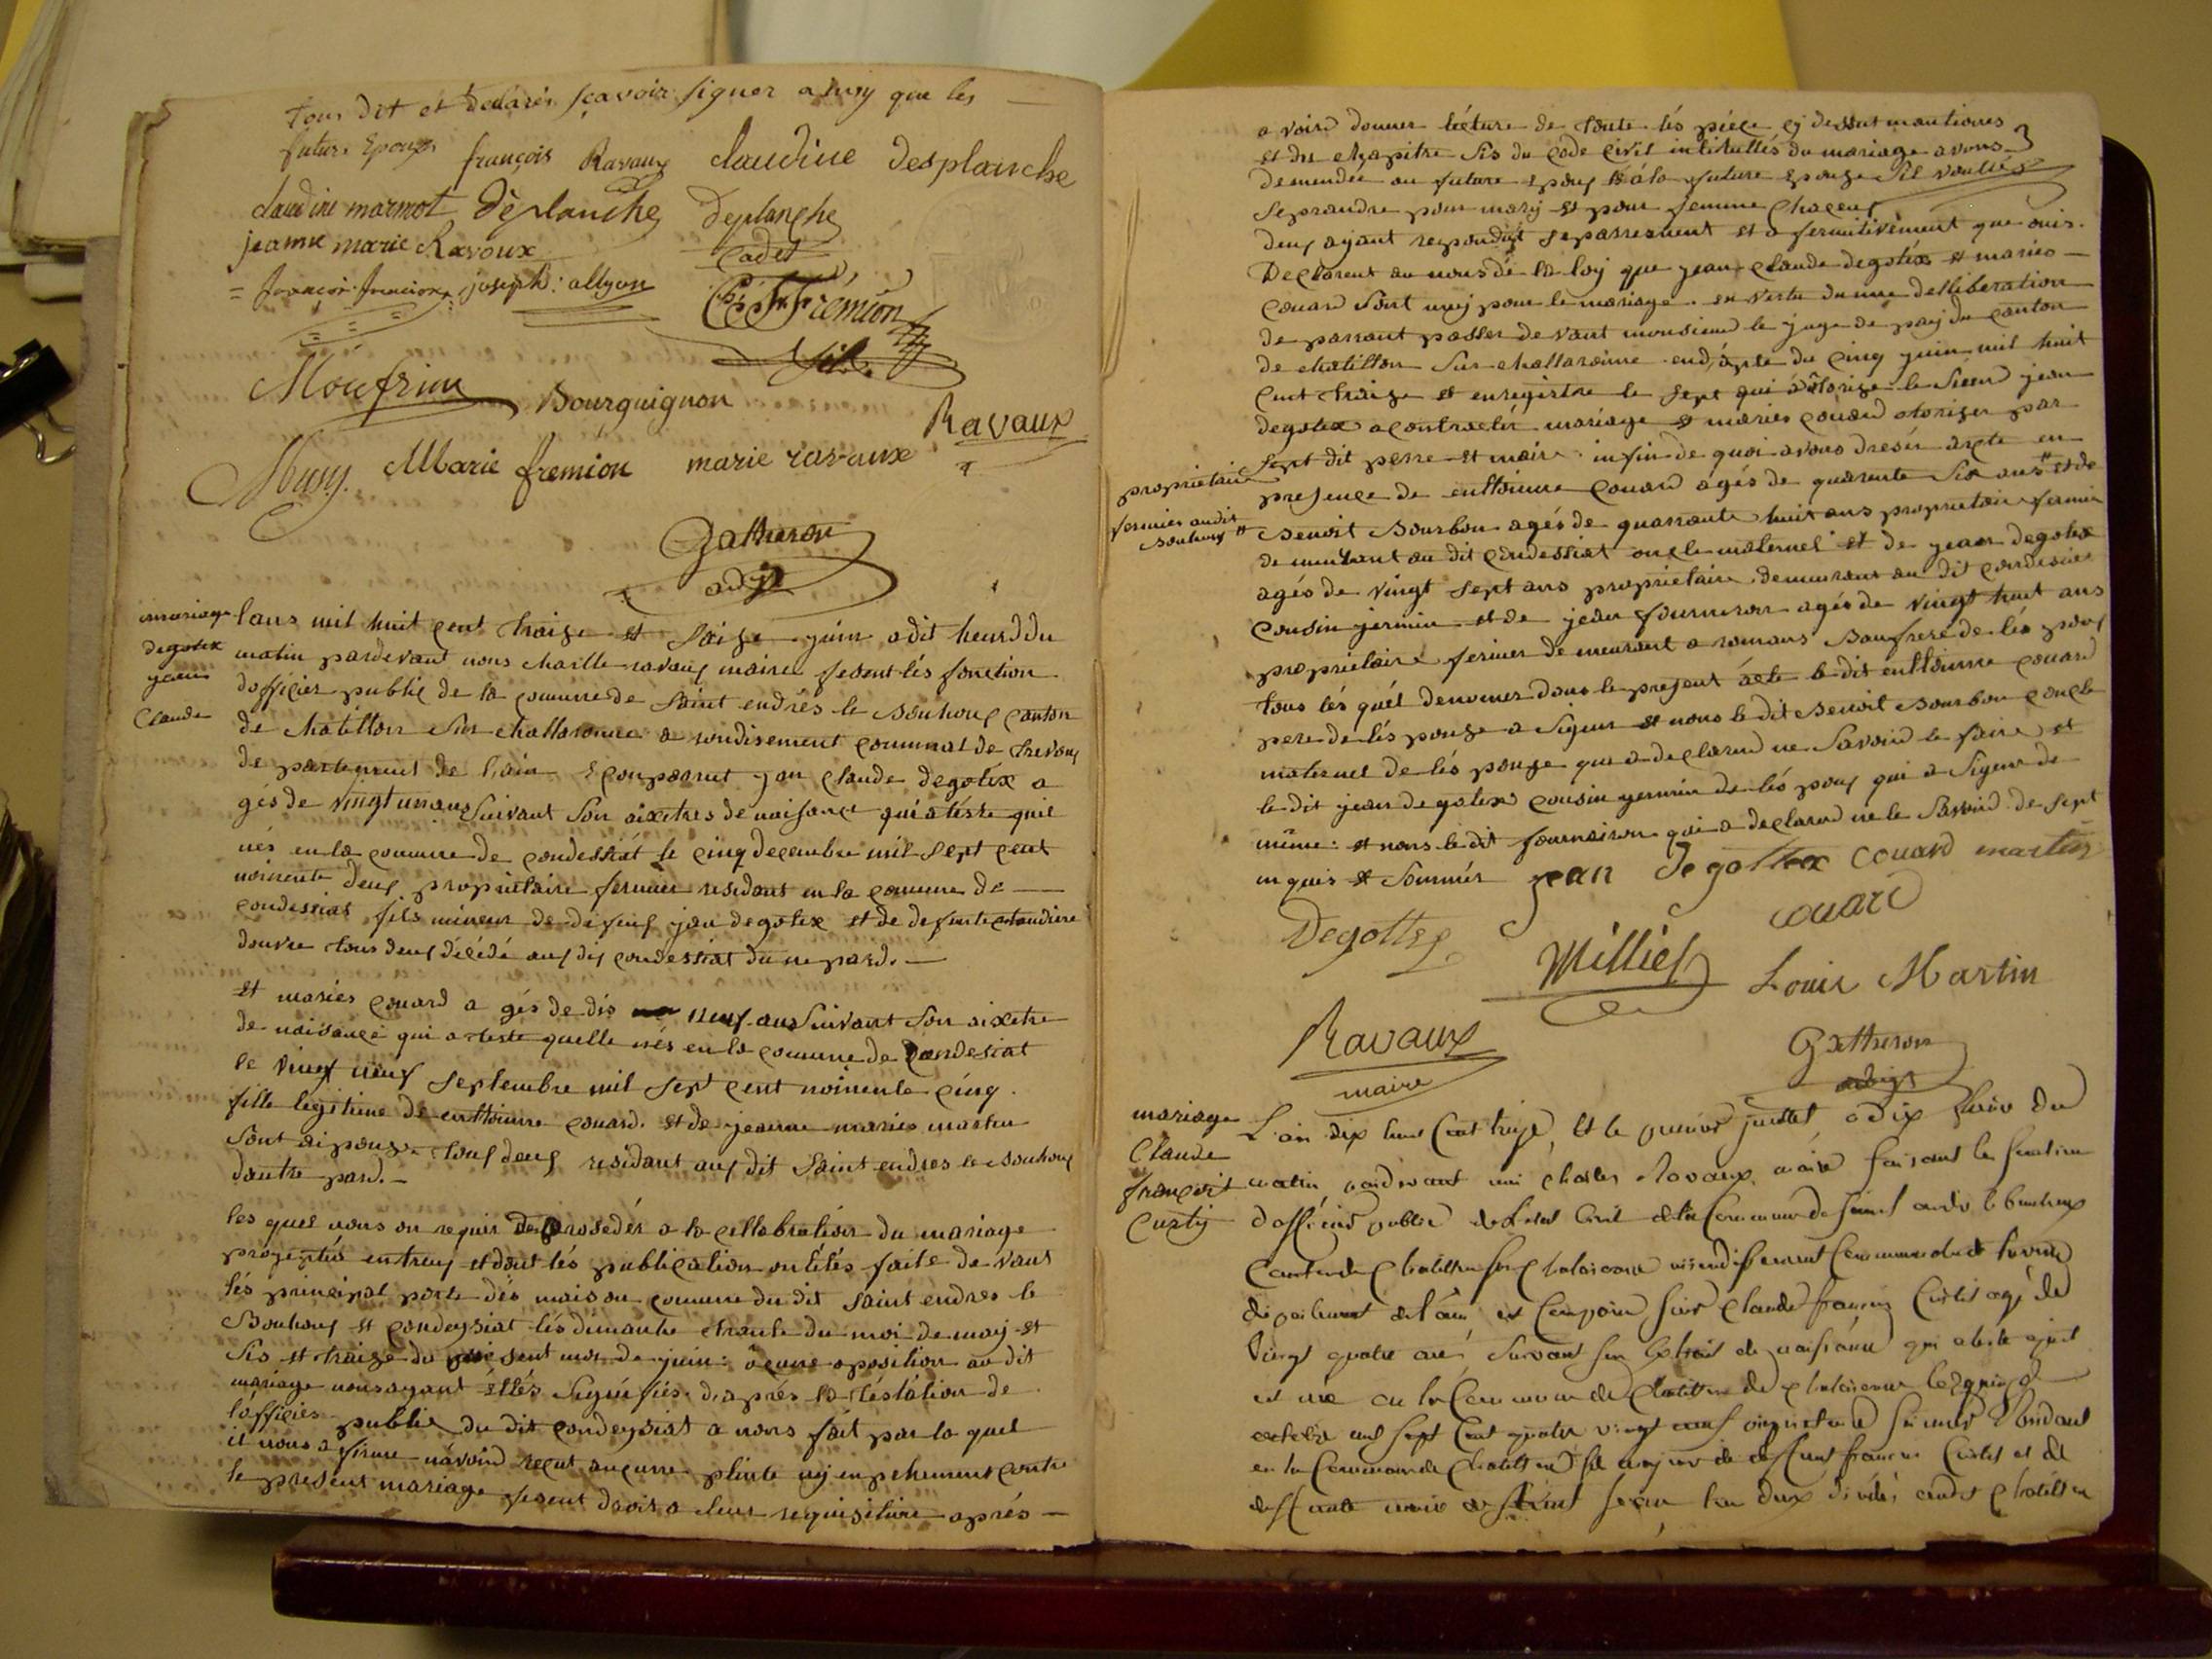 tous dit et declarés sçavoir signer ainsy que les
futurs Epoux françois Ravaux claudine desplanche
claudine marmot déplanche Deplanche
cadet
jeanne marie Ravoux
joseph allyon
Frémion
fils
Moufrin Bourguignon
Ravaux
Musy Marie fremion marie ravaux
Gatheron
adj
mariage
degotex
jean
Claude
lans mil huit cent traize et saize juin a dit heurd du
matin pardevant nous charlle ravaux maire fesent lés fonction
dofficier public de la comune de saint endrés le bouhoux canton
de chatillon sur challaronne a rondisement communal de trevoux
de partement de lain Econparut jan claude degotex a
gés de vingt un ans suivant son aixetres de naisance qui ateste quil
nés en la comune de condessiat le cinq decembre mil sept cent
noinente deux propriétaire fermier residant en la comune de
condessiat fils mineur de defeux jan degotex et de defunte claudine
douvre tous deux décédé aux dit condessiat dune pard.
et maries couard a gés de dis neuf ans suivant son aixetre
de naisance qui ateste quelle nés en la comune de Condesiat
le vingt neuf septembre mil sept cent noinente cinq
fille legitime de enthoinne couard et de jeanne maries martin
sont aipouse tous deux residant aux dit saint endres le bouhoux
dautre pard.
les quel nous on requis de prosedér a la cellebration du mariage
projentés entreux et dont lés publication on étés faite de vant
lés principal porte dés maison comune du dit saint endres le
Bouhoux et condeysiat lés dimanche trante du moi de may et
sis et traize du présent moi de juin aucune oposition au dit
mariage nous ayant étés signifiés daprés latéstation de
lofficier public du dit condeysiat a nous fait par la quel
il nous afirme navoird reçut aucune plinte ny enpehement contre
le present mariage fesent droit a leur requisitoire aprés
a voird donner lécture de toute lés piéce cy dessut mantionés
et du chapitre sis du code civil intitullés du mariage avons
demendée au future epoux et a la future epouse sil voulies
seprandre pour mary et pour femme chaceux
deux ayant repondut separrement et a fermitivement que ouis.
Declarent au nons de la loy que jean claude degotéx et maries
couard sont unij pour le mariage. en vertu dunne dellibération
de parrant passer devant monsieur le juge de paix du canton
de chatillon sur challaronne endapte du cinq juin mil huit
cent traize et enregistre le sept qui autorise le sieur jean
degotex a contracter mariage et maries couard otoriser par
sept dit perre et maire infin de quoi avons dresér axcte en
presence de enthoinne couard agés de quarente six ans et de
propriétaire
fermier audit
bouhoux
Benoit Bourbon agés de quarante huit ans proprietaire fermier
demeurant au dit condessiat oncle maternel et de jean degotex
agés de vingt sept ans propriétaire demeurant au dit condesiat
cousin jermin et de jean fourneron agés de vingt huit ans
propriétaire fermier demeurant a romans baufrere de lés poux
tous lés quél denomer dans le present acte le dit enthoinne couard
pere de lés pouse a signer et nous le dit Benoit Bourbon oncle
maternel de lés pouse qui a declarer ne savoird le faire et
le dit jean degotex cousin germin de lés poux qui a signer de
même et nons le dit fourneiron qui a declarer ne le savoird de sept
inquis et sommér jean degottex couard martin
couard
Degottex
Milliet Louis Martin
Ravaux
maire
Gatheron
adj
mariage
Claude
françoit
Curty
L'an dix huit cent treize, et le premier juillet, a dix heure du
matin pardevant moi charles Ravaux, maire faisant les fonctions
d'officier public de l'etat civil de la Commune de saint andré le bouhoux
Canton de Chatillon sur Chalaronne arrondissement Communal de trevoux
departement de l'ain est Comparu sieur Claude françois Curtis agé de
vingt quatre ans suivant son Extrait de naissance qui atteste qu'il
est né en la Commune de Chatillon de Chalaronne le quinze
octobre mil sept Cent quatre vingt huit
en la Commune de Chatillon fils majeur de deffunt francois Curtis et de